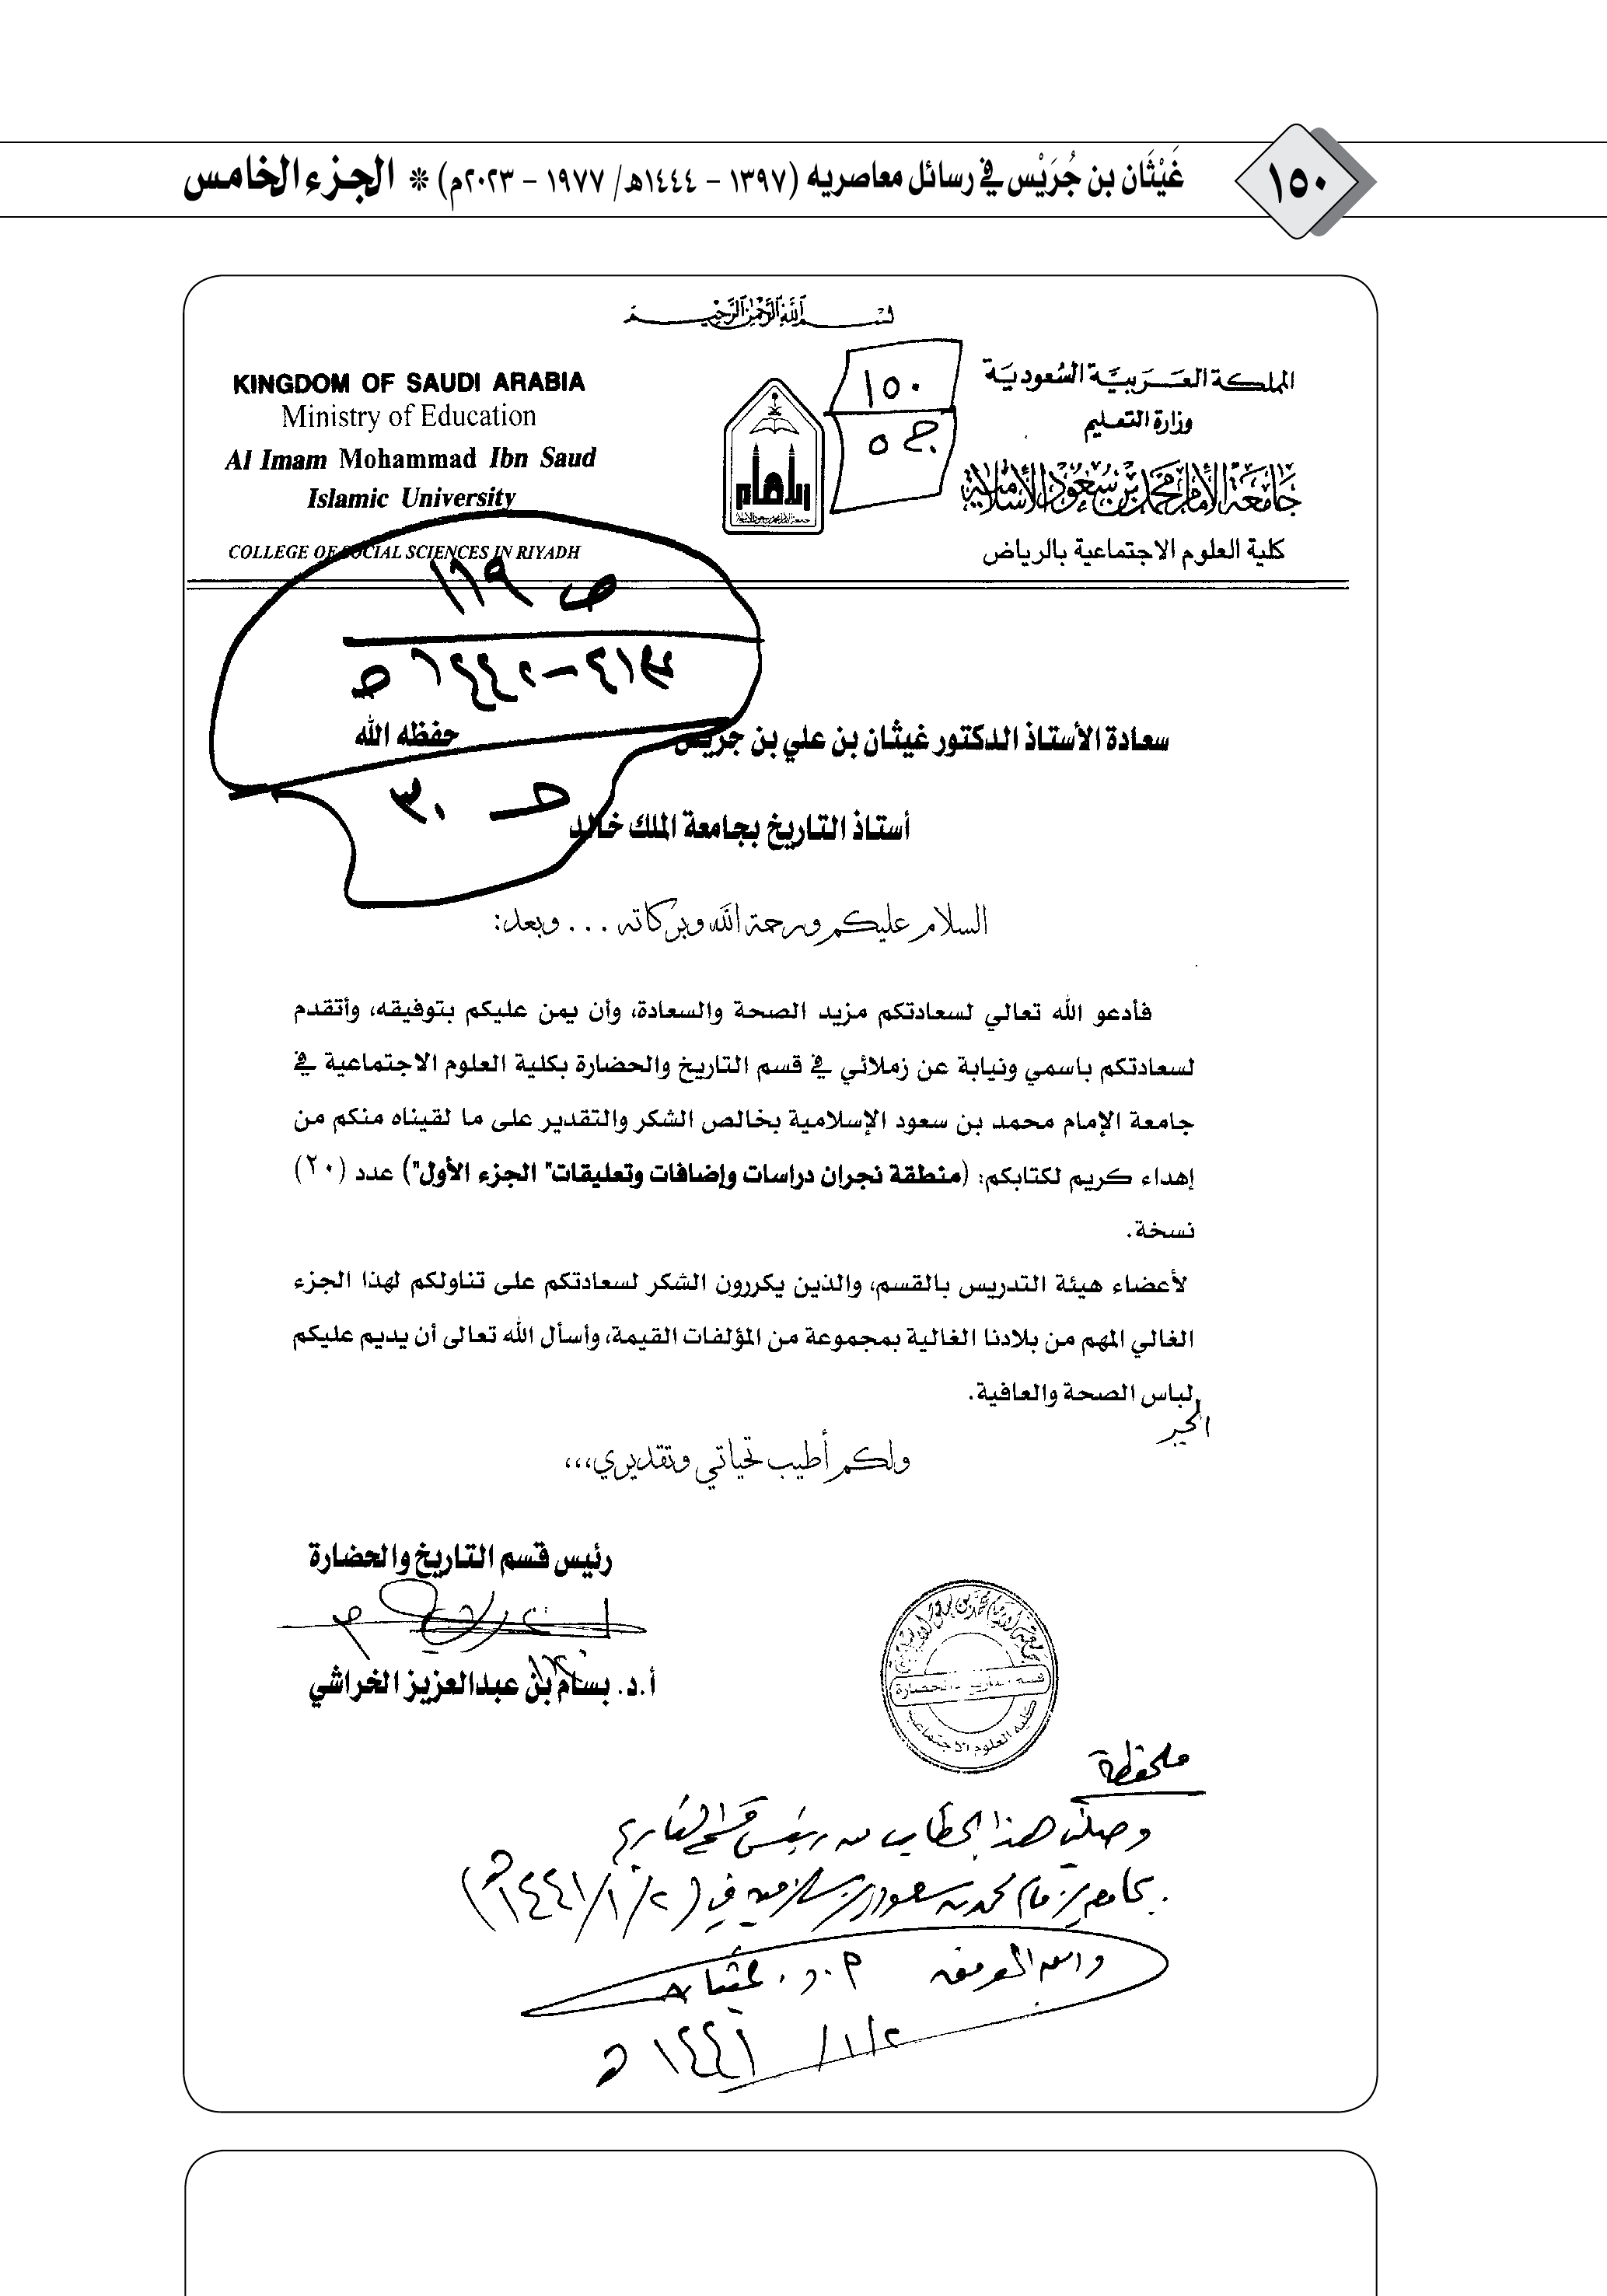 ١٥٠
غَيْثَان بن جُرَيْس في رسائل معاصريه (١٣٩٧ - ١٤٤٤هـ/ ١٩٧٧ - ٢٠٢٣م) * الجزء الخامس
بسم الله الرحمن الرحيم
المملكة العربية السعودية
وزارة التعليم
جامعة الإمام محمد بن سعود الإسلامية
كلية العلوم الاجتماعية بالرياض
١٥٠
ج ٥
KINGDOM OF SAUDI ARABIA
Ministry of Education
Al Imam Mohammad Ibn Saud
Islamic University
COLLEGE OF SOCIAL SCIENCES IN RIYADH
ص ١٦٩
ج ٣٠
سعادة الأستاذ الدكتور غيثان بن علي بن جريس حفظه الله
أستاذ التاريخ بجامعة الملك خالد
السلام عليكم ورحمة الله وبركاته ... وبعد:
فأدعو الله تعالي لسعادتكم مزيد الصحة والسعادة، وأن يمن عليكم بتوفيقه، وأتقدم
لسعادتكم باسمي ونيابة عن زملائي في قسم التاريخ والحضارة بكلية العلوم الاجتماعية في
جامعة الإمام محمد بن سعود الإسلامية بخالص الشكر والتقدير على ما لقيناه منكم من
إهداء كريم لكتابكم: (منطقة نجران دراسات وإضافات وتعليقات" الجزء الأول") عدد (٢٠)
نسخة.
لأعضاء هيئة التدريس بالقسم، والذين يكررون الشكر لسعادتكم على تناولكم لهذا الجزء
الغالي المهم من بلادنا الغالية بمجموعة من المؤلفات القيمة، وأسأل الله تعالى أن يديم عليكم
لباس الصحة والعافية.
ولكم أطيب تحياتي وتقديري،،،
رئيس قسم التاريخ والحضارة
أ.د. بسام بن عبدالعزيز الخراشي
قسم التاريخ والحضارة
كلية العلوم الاجتماعية
ملحظة
وصلني هذا الخطاب من رئيس قسم التاريخ
بجامعة الإمام محمد بن سعود الإسلامية في (١٤٤١/١/٢هـ)
والله الموفق أ.د. غيثان
١٤٤١/١/٢هـ